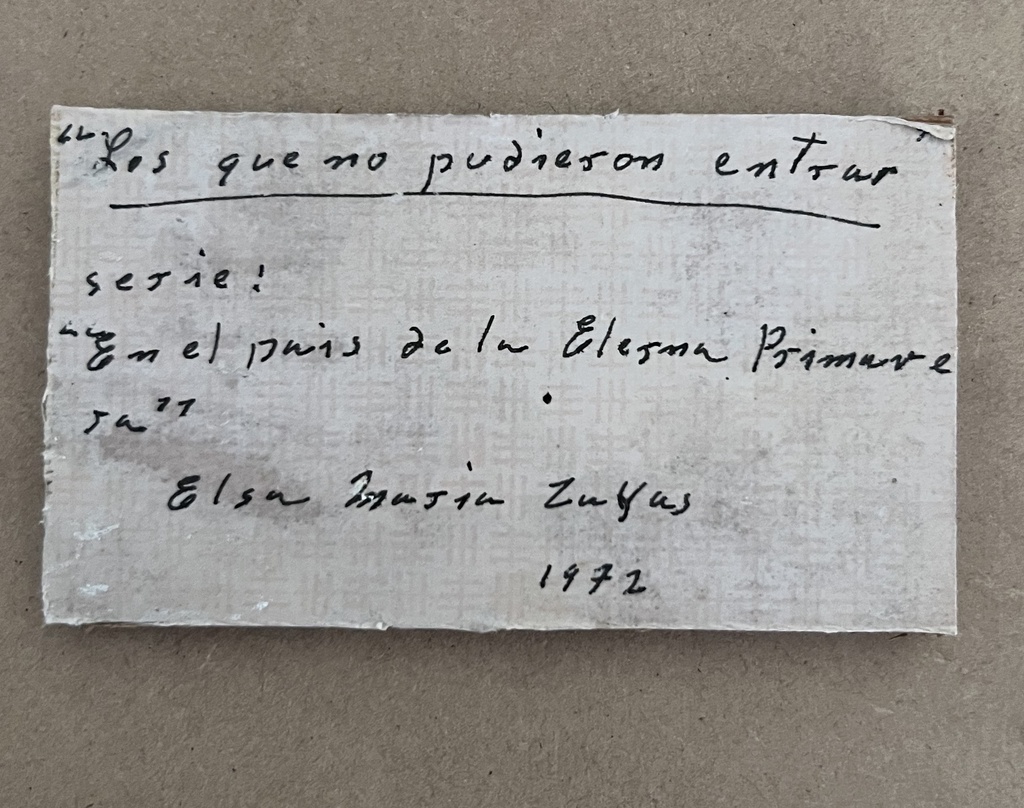 "Los que no pudieron entrar"
serie:
"En el pais de la Eterna Primave
ra"
Elsa Maria Zayas
1972